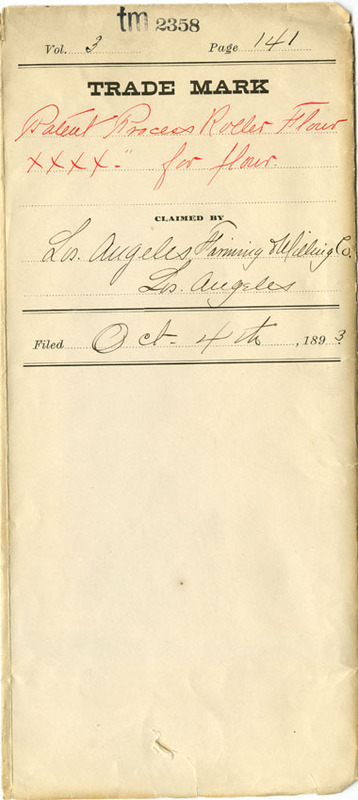 tm 2358
Vol. 3 Page 141
TRADE MARK
Patent Process Roller Flour
XXXX-" for flour.
CLAIMED BY
Los Angeles Farming & Milling Co.
Los Angeles
Filed Oct. 4th, 1893